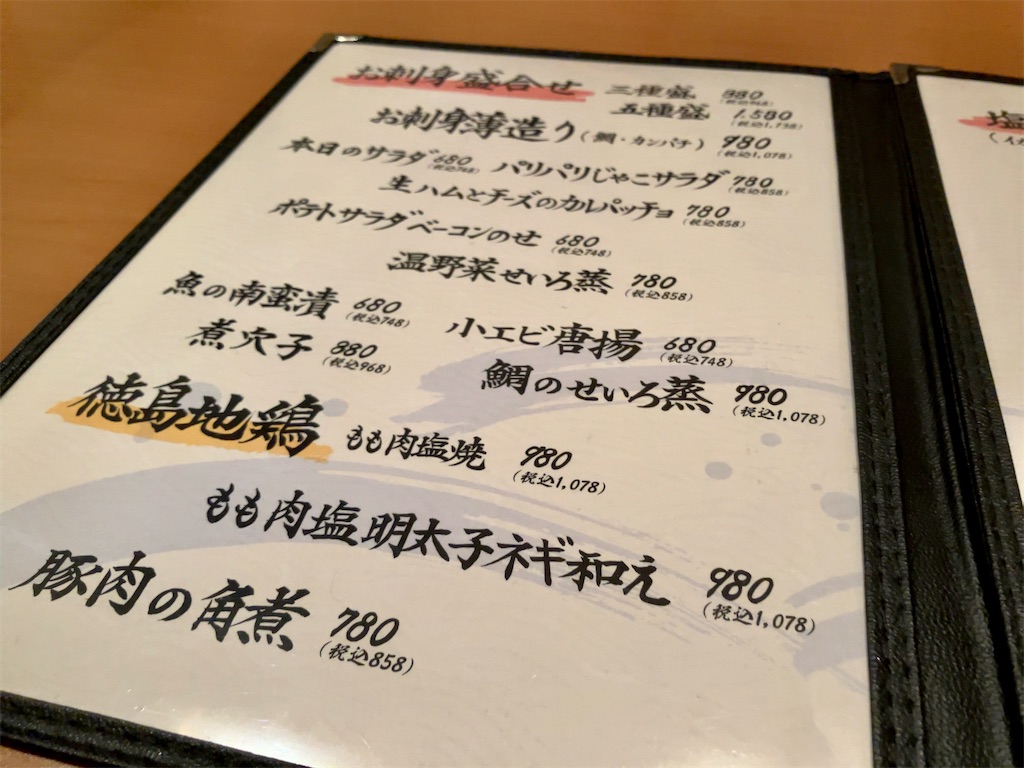 お刺身盛合せ 三種盛 880 (税込968)
五種盛 1,580 (税込1,738)
お刺身薄造り(鯛・カンパチ) 980 (税込1,078)
本日のサラダ 680 (税込748) パリパリじゃこサラダ 780 (税込858)
生ハムとチーズのカルパッチョ 780 (税込858)
ポテトサラダベーコンのせ 680 (税込748)
温野菜せいろ蒸 780 (税込858)
魚の南蛮漬 680 (税込748) 小エビ唐揚 680 (税込748)
煮穴子 880 (税込968) 鯛のせいろ蒸 980 (税込1,078)
徳島地鶏 もも肉塩焼 980 (税込1,078)
もも肉塩明太子ネギ和え 980 (税込1,078)
豚肉の角煮 780 (税込858)
塩